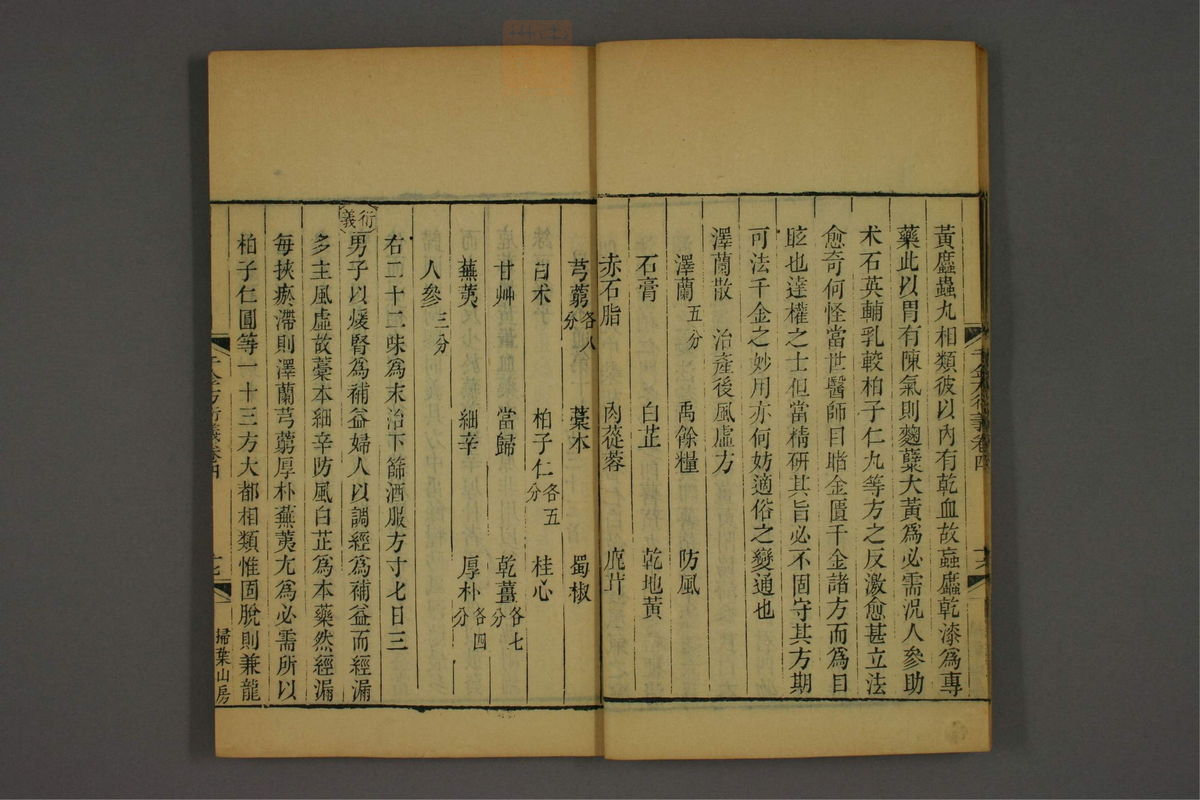 黃䗪蟲丸相類彼以內有乾血故蝱䗪乾漆爲專
藥此以胃有陳氣則麴蘗大黃爲必需況人參助
术石英輔乳較柏子仁丸等方之反激愈甚立法
愈奇何怪當世醫師日睹金匱千金諸方而爲目
眩也達權之士但當精研其旨必不固守其方期
可法千金之妙用亦何妨適俗之變通也
澤蘭散 治產後風虛方
澤蘭五分 禹餘糧 防風
石膏 白芷 乾地黃
赤石脂 肉蓯蓉 鹿茸
芎藭各八分 藁本 蜀椒
白术 柏子仁各五分 桂心
甘艸 當歸 乾薑各七分
蕪荑 細辛 厚朴各四分
人參三分
右二十二味爲末治下篩酒服方寸匕日三
衍義
男子以煖腎爲補益婦人以調經爲補益而經漏
多主風虛故藁本細辛防風白芷爲本藥然經漏
每挾瘀滯則澤蘭芎藭厚朴蕪荑尤爲必需所以
柏子仁圓等一十三方大都相類惟固脫則兼龍
千金方衍義卷四
掃葉山房